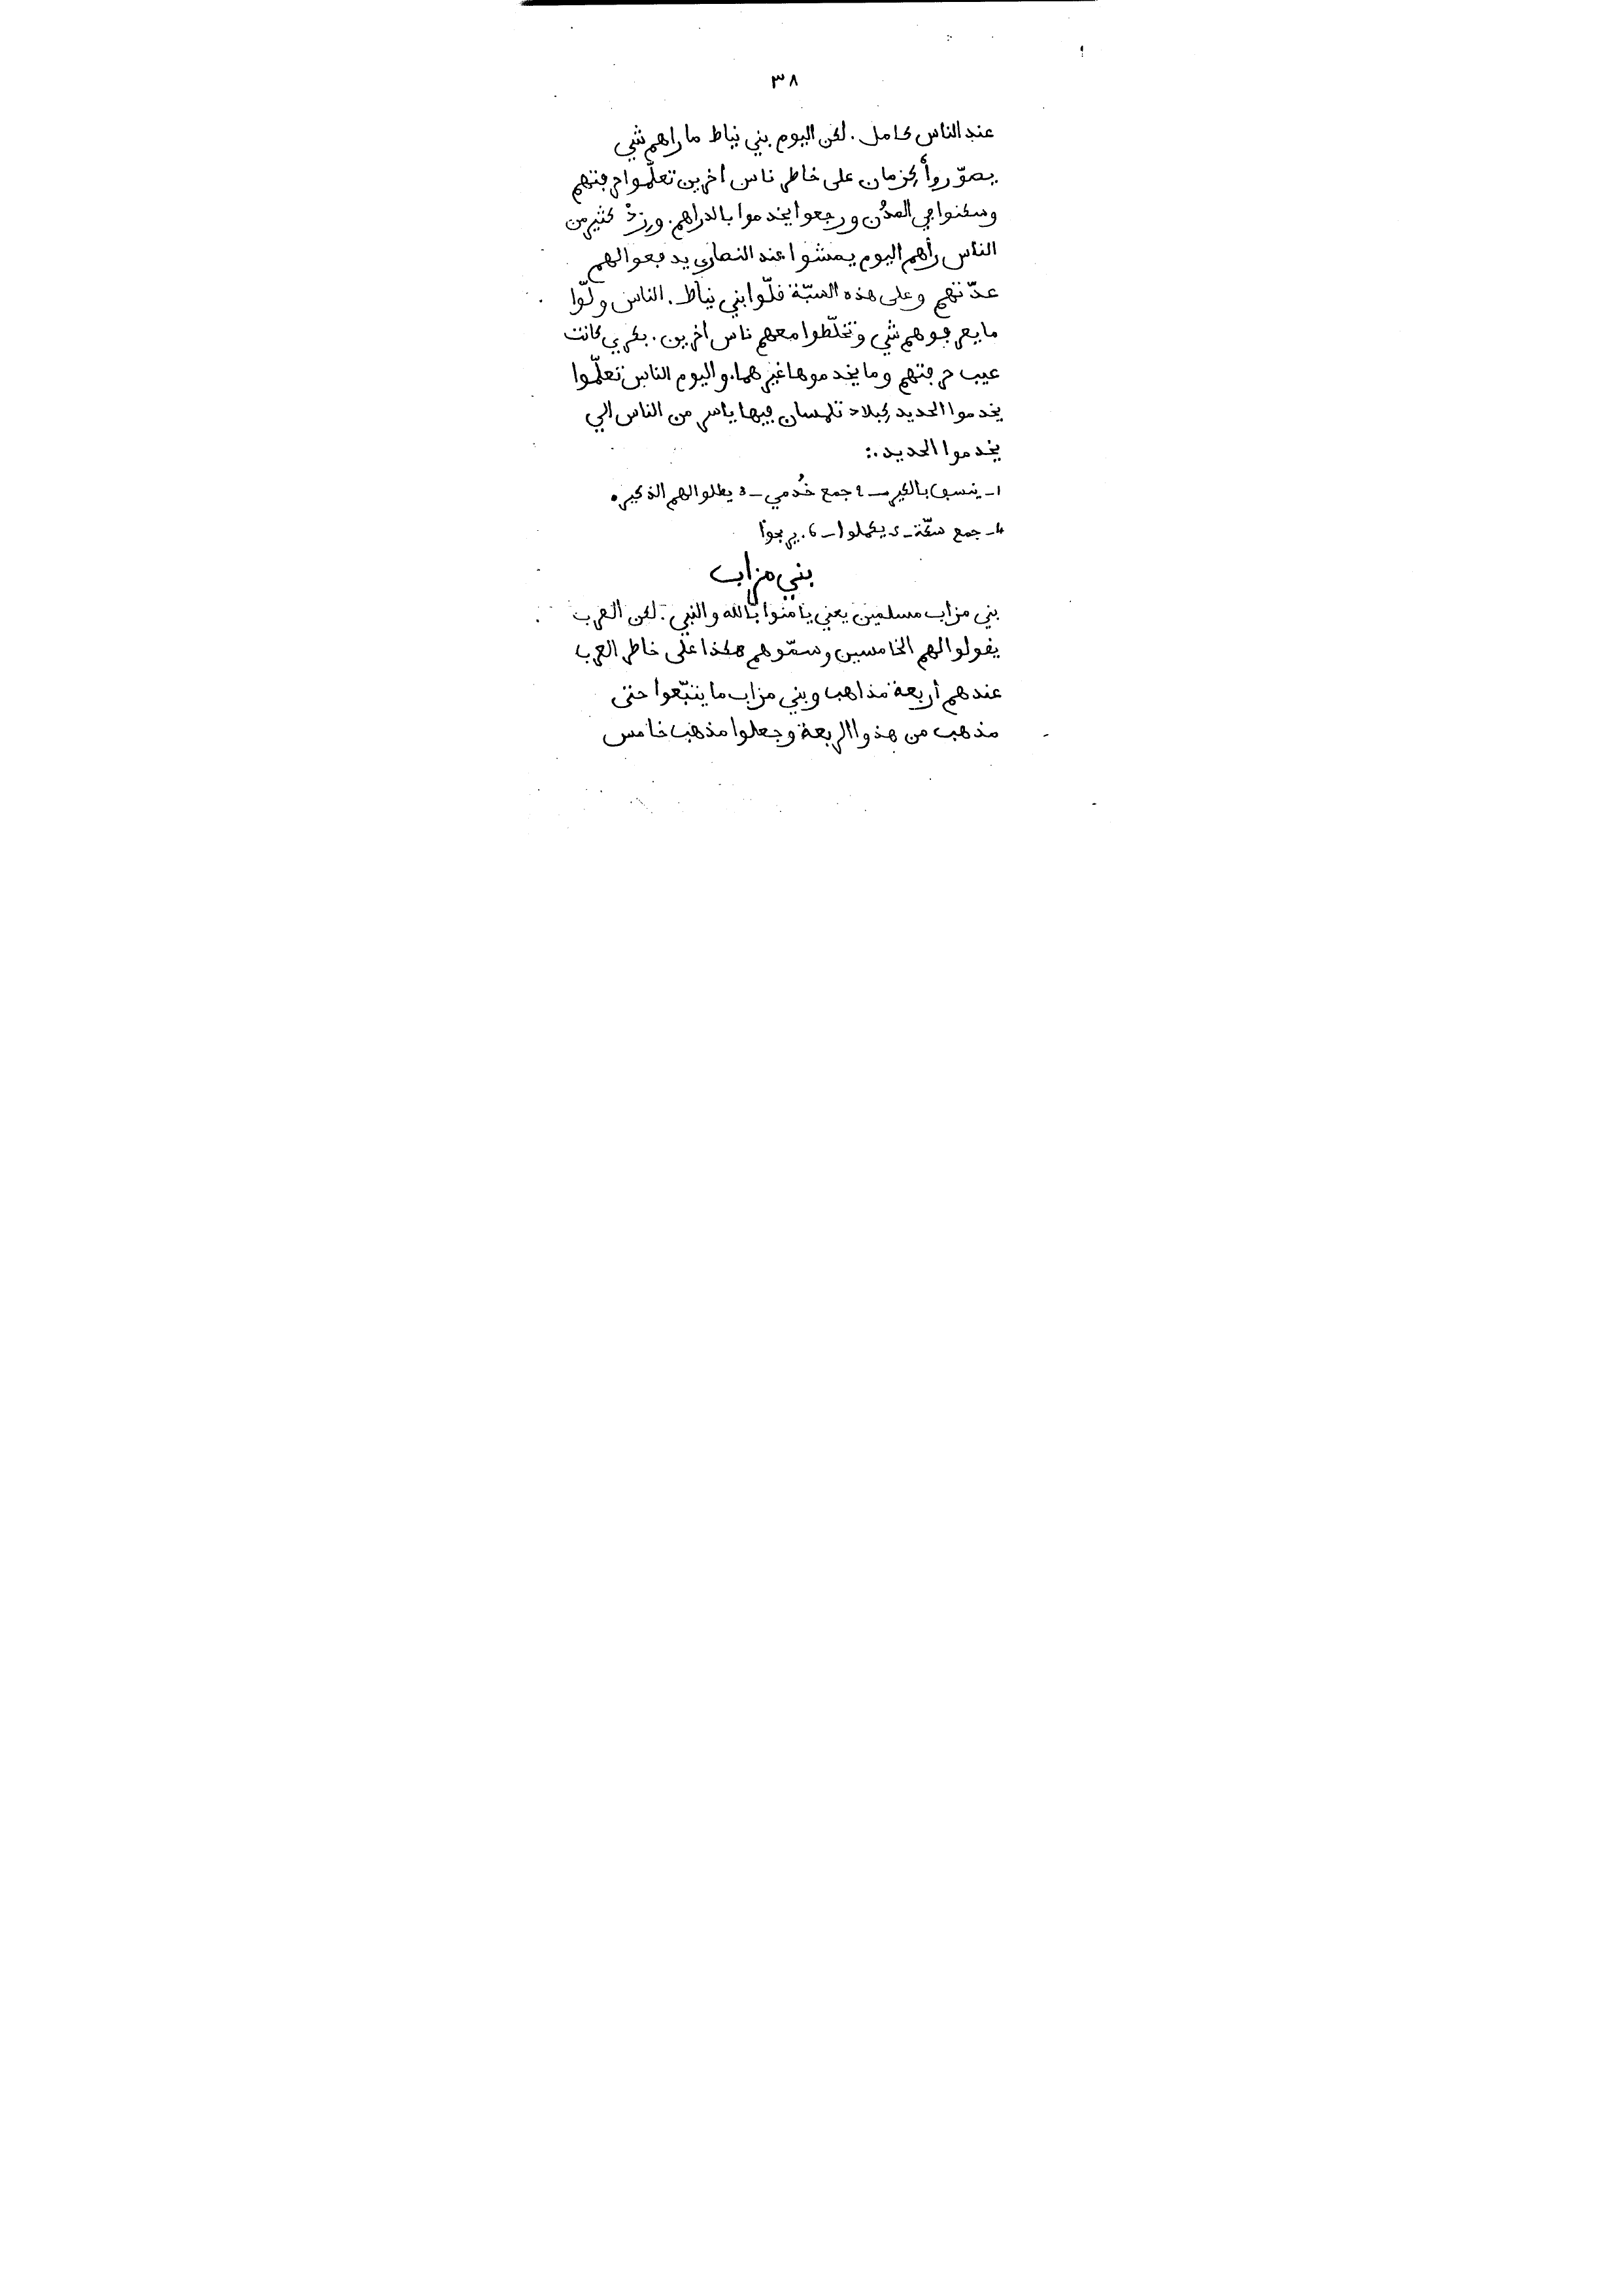 ٣٨
عند الناس كامل. لكن اليوم بني نياط ما راهم شي
يصوّروا كزمان على خاطر ناس أخرين تعلّموا حرڢتهم
وسكنوا ڢي المدُن ورجعوا يخدموا بالدراهم. وزدْ كثير من
الناس راهم اليوم يمشوا عند النصارى يدڢعوا لهم
عدّتهم وعلى هذه السبّة فلّوا بني نياط. الناس ولّوا
ما يعرڢوهم شي وتخلّطوا معهم ناس أخرين. بكري كانت
عيب حرڢتهم وما يخدموها غير هما. واليوم الناس تعلّموا
يخدموا الحديد كبلاد تلمسان ڢيها ياسر من الناس الي
يخدموا الحديد.:
١ـ ينسب بالكير ـ ٢ جمع خُدمي ـ 3 يطلوا لهم الذكير.
4 ـ جمع سكّة ـ 5 يكملوا ـ 6. يربحوا
بني مزاب
بني مزاب مسلمين يعني يامنوا بالله والنبي. لكن العرب
يفولوا لهم الخامسين وسمّوهم هكذا على خاطر العرب
عندهم أربعة مذاهب وبني مزاب ما يتبّعوا حتى
مذهب من هذوا الربعة وجعلوا مذهب خامس